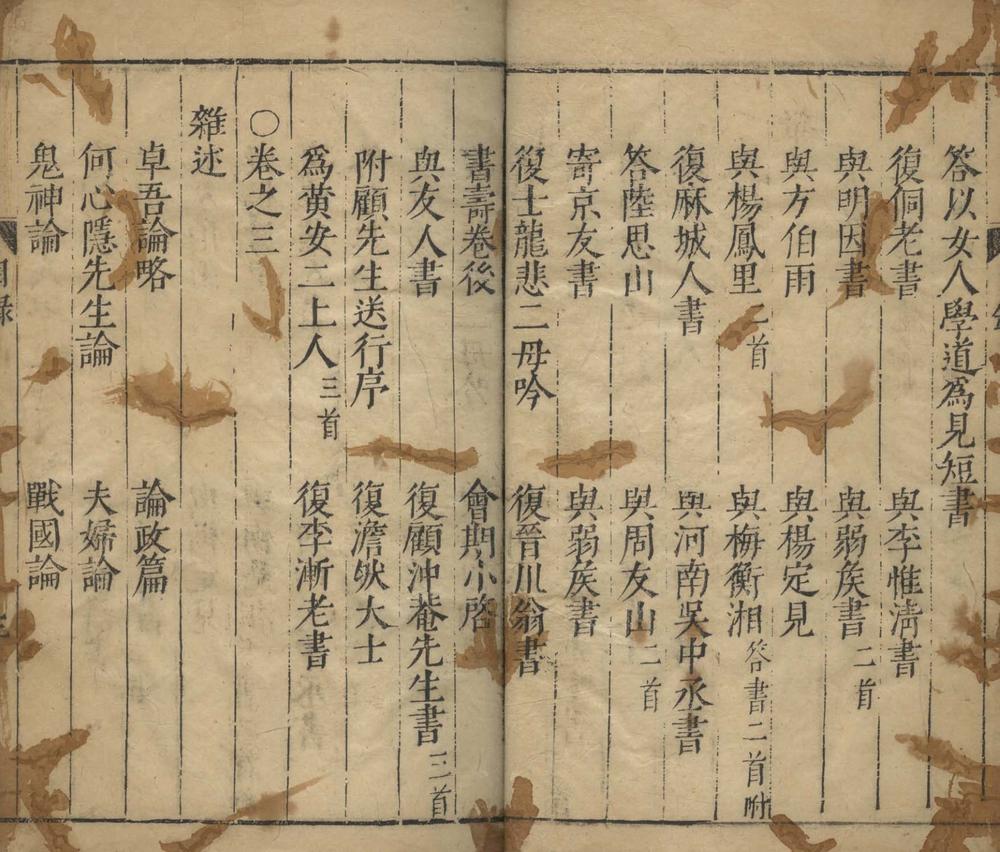 答以女人學道爲見短書
復侗老書 與李惟淸書
與明因書 與弱矦書二首
與方伯雨 與楊定見
與楊鳳里二首 與梅衡湘答書二首附
復麻城人書 與河南吳中丞書
答陸思山 與周友山二首
寄京友書 與弱矦書
復士龍悲二母吟 復晉川翁書
書壽卷後 會期小啓
與友人書 復顧沖菴先生書三首
附顧先生送行序 復澹然大士
爲黄安二上人三首 復李漸老書
○卷之三
雜述
卓吾論略 論政篇
何心隱先生論 夫婦論
鬼神論 戰國論
目錄